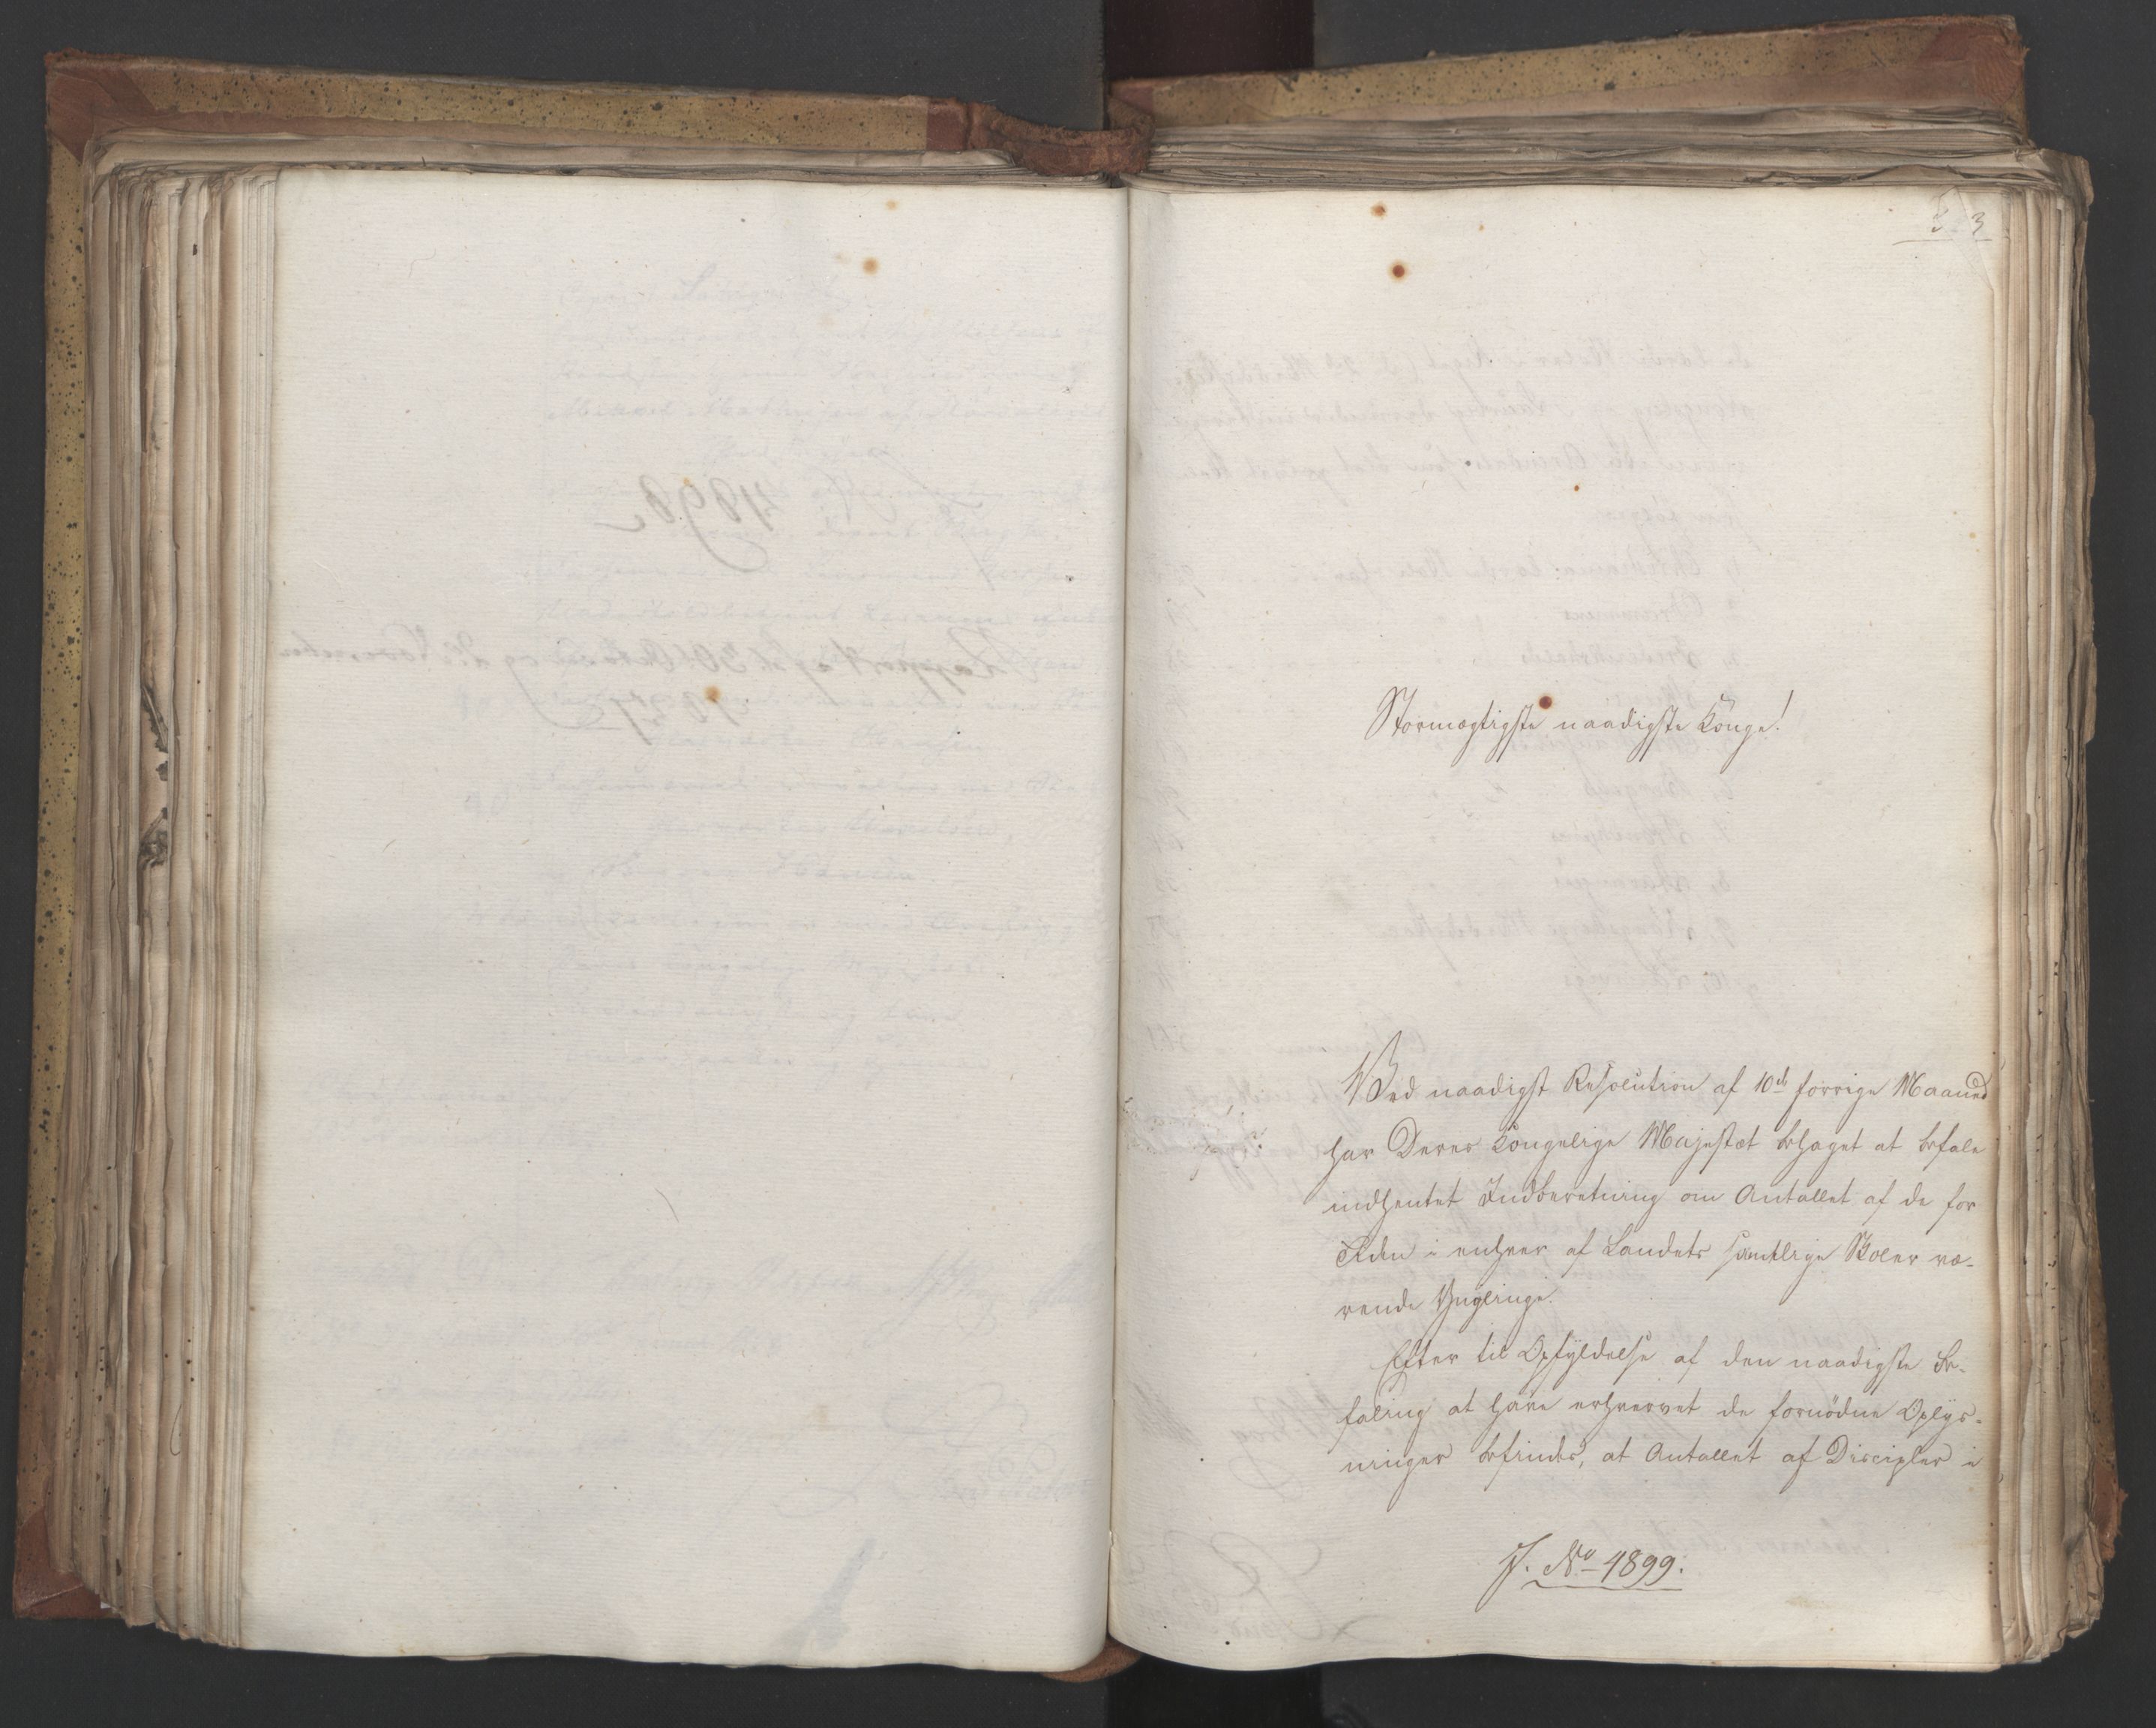 3
Stormægtigste naadigste Konge!
Ved naadigst Resolution af 10de forrige Maaned
har Deres Kongelige Majestæt behaget at befale
indhentet Indberetning om Antallet af de for
Tiden i enhver af Landets samtlige Skoler væ-
rende Ynglinge.
Efter til Opfyldelse af den naadigste Be-
faling at have erhvervet de fornødne Oplys-
ninger befindes, at Antallet af Disciple i
J. No 4899.